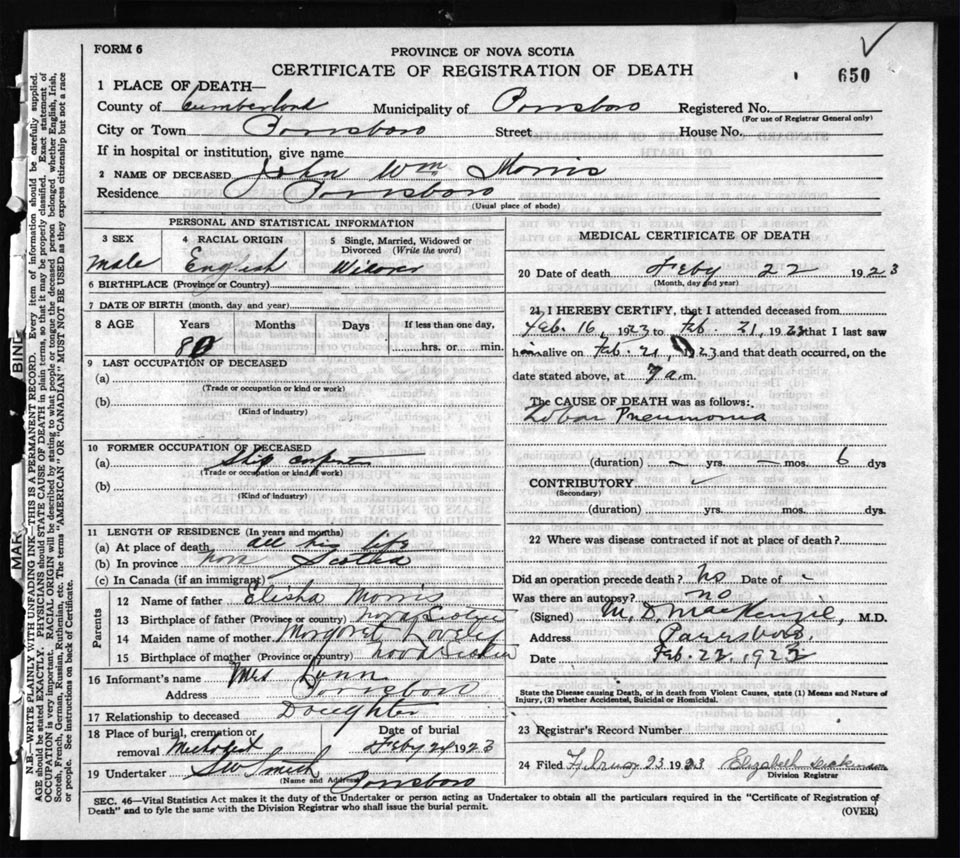 FORM 6
PROVINCE OF NOVA SCOTIA
CERTIFICATE OF REGISTRATION OF DEATH
650
1 PLACE OF DEATH—
County of Cumberland Municipality of Parrsboro Registered No.
(For use of Registrar General only)
City or Town Parrsboro Street House No.
If in hospital or institution, give name
2 NAME OF DECEASED John Wm Morris
Residence Parrsboro
(Usual place of abode)
PERSONAL AND STATISTICAL INFORMATION
3 SEX
male
4 RACIAL ORIGIN
English
5 Single, Married, Widowed or
Divorced (Write the word)
6 BIRTHPLACE (Province or Country)
7 DATE OF BIRTH (month, day and year)
8 AGE Years Months Days If less than one day,
80 hrs. or min.
9 LAST OCCUPATION OF DECEASED
(a)
(Trade or occupation or kind or work)
(b)
(Kind of industry)
10 FORMER OCCUPATION OF DECEASED
(a) Ship
(Trade or occupation or kind of work)
(b)
(Kind of industry)
11 LENGTH OF RESIDENCE (In years and months)
(a) At place of death all his life
(b) In province Nova Scotia
(c) In Canada (if an immigrant)
Parents
12 Name of father Elisha Morris
13 Birthplace of father (Province or country) Nova Scotia
14 Maiden name of mother Margaret
15 Birthplace of mother (Province or country) Nova Scotia
16 Informant's name Mrs
Address Parrsboro
17 Relationship to deceased Daughter
18 Place of burial, cremation or Date of burial
removal Methodist Feby 1923
19 Undertaker Smith
(Name and Address) Parrsboro
MEDICAL CERTIFICATE OF DEATH
20 Date of death Feby 22 1923
(Month, day and year)
21 I HEREBY CERTIFY, that I attended deceased from
Feb. 16, 1923 to Feb. 21, 1923 that I last saw
him alive on Feb. 21, 1923 and that death occurred, on the
date stated above, at 7 a.m.
The CAUSE OF DEATH was as follows:
Lobar Pneumonia
(duration) – yrs. – mos. 6 dys
CONTRIBUTORY
(Secondary)
(duration) yrs. mos. dys
22 Where was disease contracted if not at place of death?
Did an operation precede death? No Date of -
Was there an autopsy? no
(Signed) M. D. MacKenzie, M.D.
Address Parrsboro.
Date Feb. 22, 1923
State the Disease causing Death, or in death from Violent Causes, state (1) Means and Nature of
Injury, (2) whether Accidental, Suicidal or Homicidal.
23 Registrar's Record Number
24 Filed February 23 1923 Elizabeth
Division Registrar
SEC. 46—Vital Statistics Act makes it the duty of the Undertaker or person acting as Undertaker to obtain all the particulars required in the "Certificate of Registration of
Death" and to fyle the same with the Division Registrar who shall issue the burial permit.
(OVER)
N.B.—WRITE PLAINLY WITH UNFADING INK—THIS IS A PERMANENT RECORD. Every item of information should be carefully supplied.
AGE should be stated EXACTLY. PHYSICIANS should STATE CAUSE OF DEATH in plain terms, so that it may be properly classified. Exact statement of
OCCUPATION is very important. RACIAL ORIGIN will be described by stating to what people or tongue the deceased person belonged whether English, Irish,
Scotch, French, German, Russian, Ruthenian, etc. The terms "AMERICAN" OR "CANADIAN" MUST NOT BE USED as they express citizenship but not a race
or people. See instructions on back of Certificate.